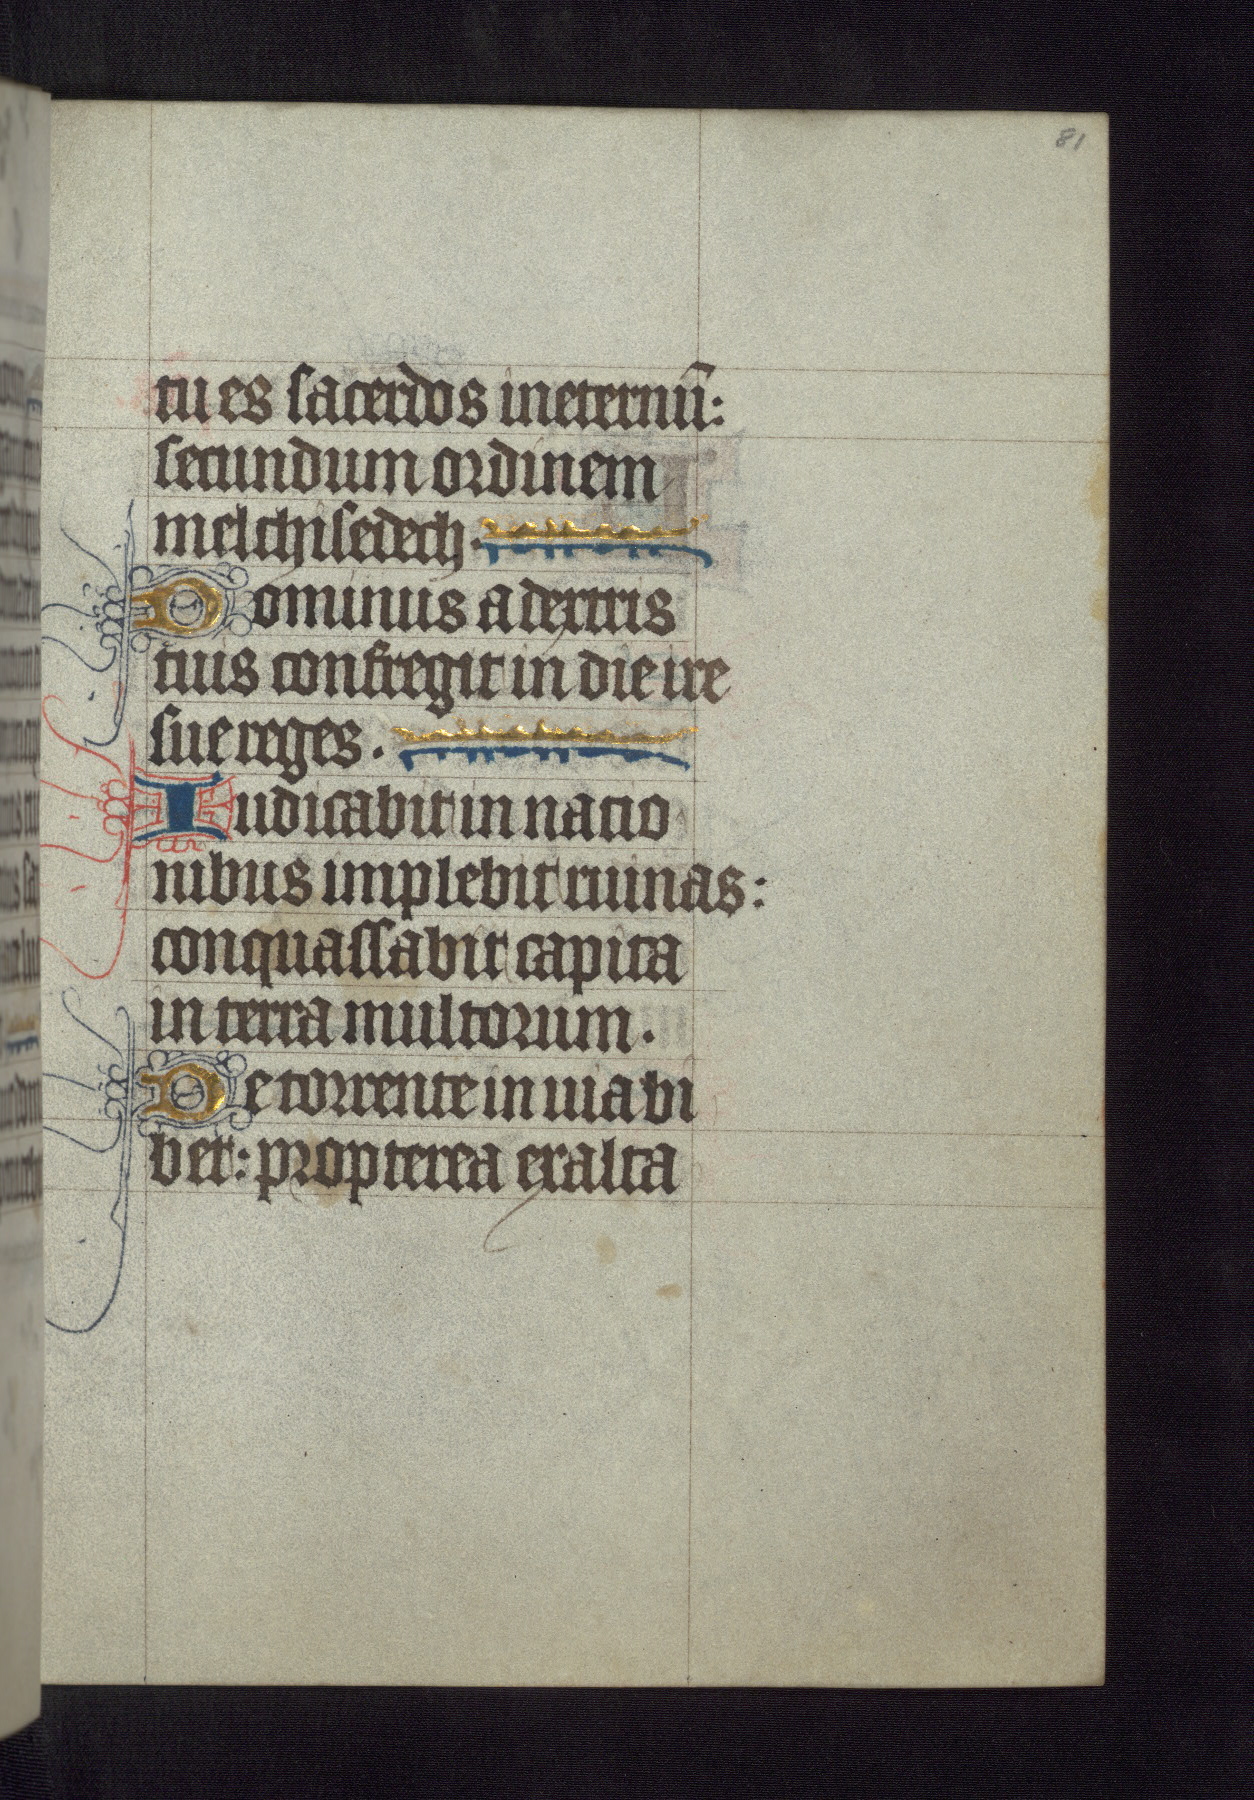 81
tu es sacerdos in eternū:
secundum ordinem
melchisedech.
Dominus a dextris
tuis confregit in die ire
sue reges.
Iudicabit in natio
nibus implebit ruinas:
conquassabit capita
in terra multorum.
De torrente in uia bi
bet: propterea exalta